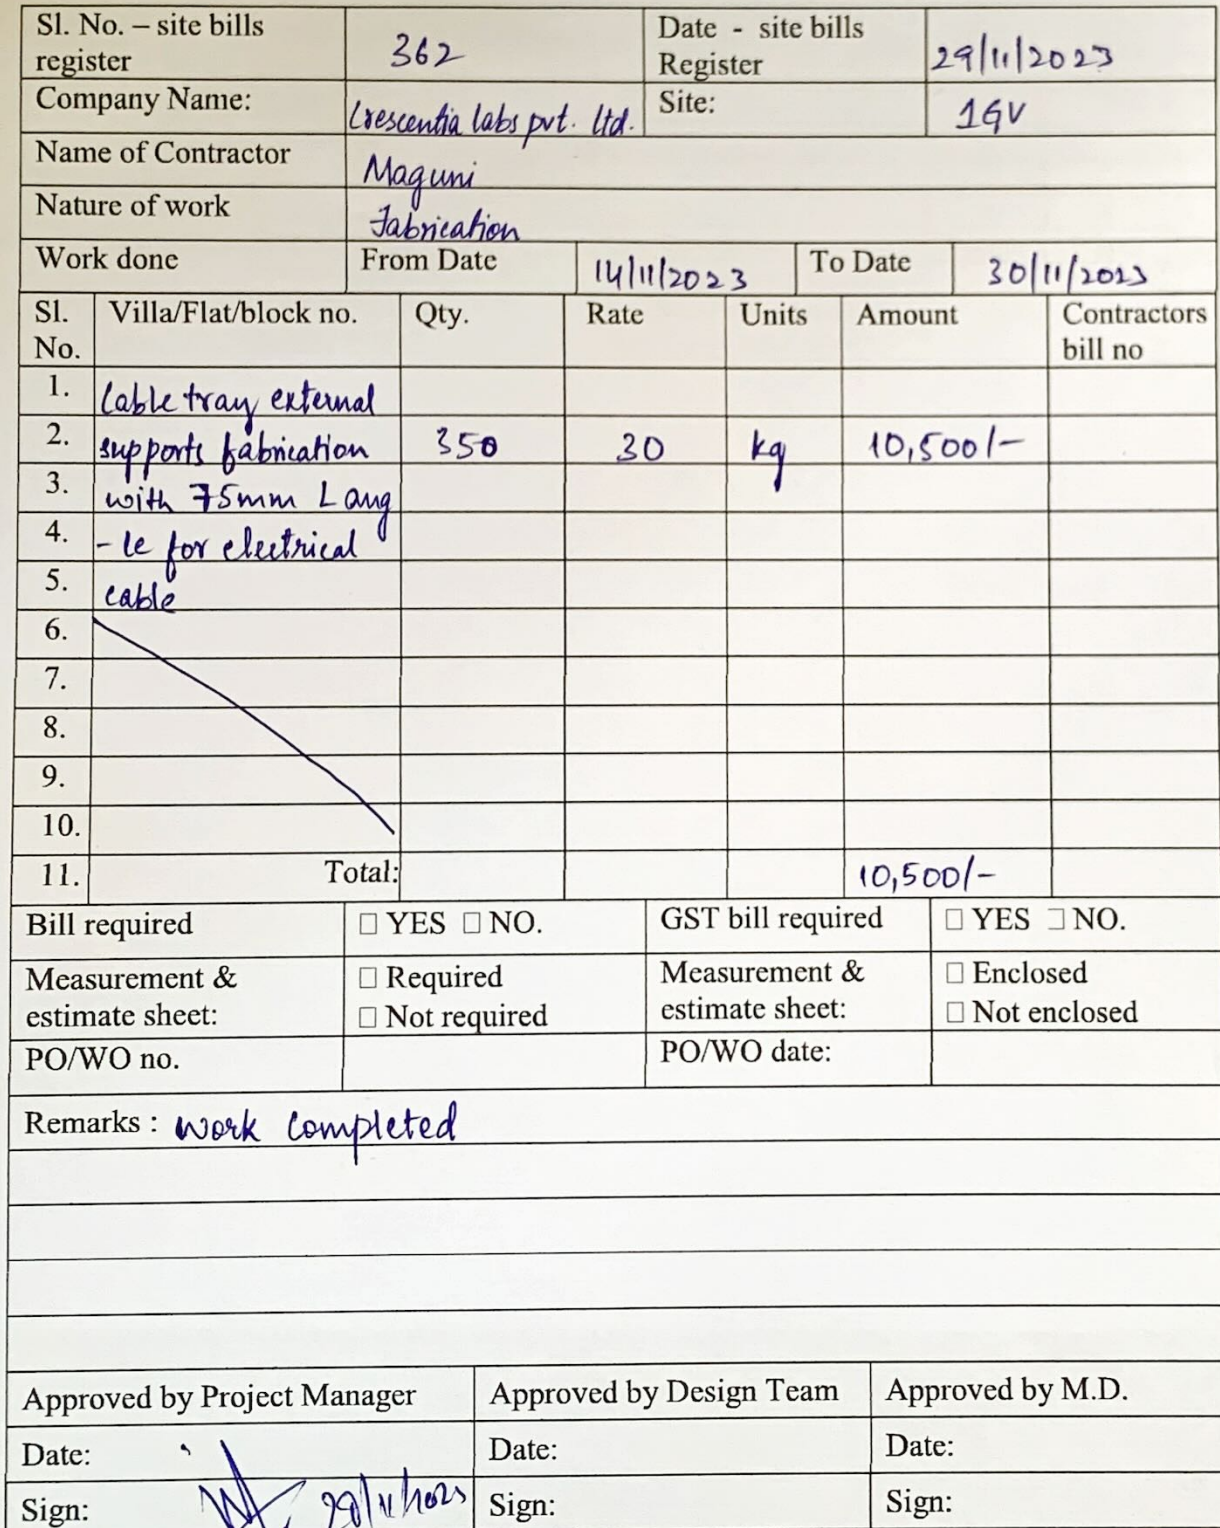 Sl. No. – site bills register 362 Date - site bills Register 29/11/2023
Company Name: Crescentia labs pvt. ltd. Site: 1GV
Name of Contractor Maguni
Nature of work Fabrication
Work done From Date 14/11/2023 To Date 30/11/2023
Sl. No. Villa/Flat/block no. Qty. Rate Units Amount Contractors bill no
1. Cable tray external
2. supports fabrication 350 30 kg 10,500/-
3. with 75mm L ang
4. -le for electrical
5. cable
6.
7.
8.
9.
10.
11. Total: 10,500/-
Bill required □ YES □ NO. GST bill required □ YES □ NO.
Measurement & estimate sheet: □ Required □ Not required Measurement & estimate sheet: □ Enclosed □ Not enclosed
PO/WO no. PO/WO date:
Remarks : work completed
Approved by Project Manager Approved by Design Team Approved by M.D.
Date: Date: Date:
Sign: Sign: Sign: